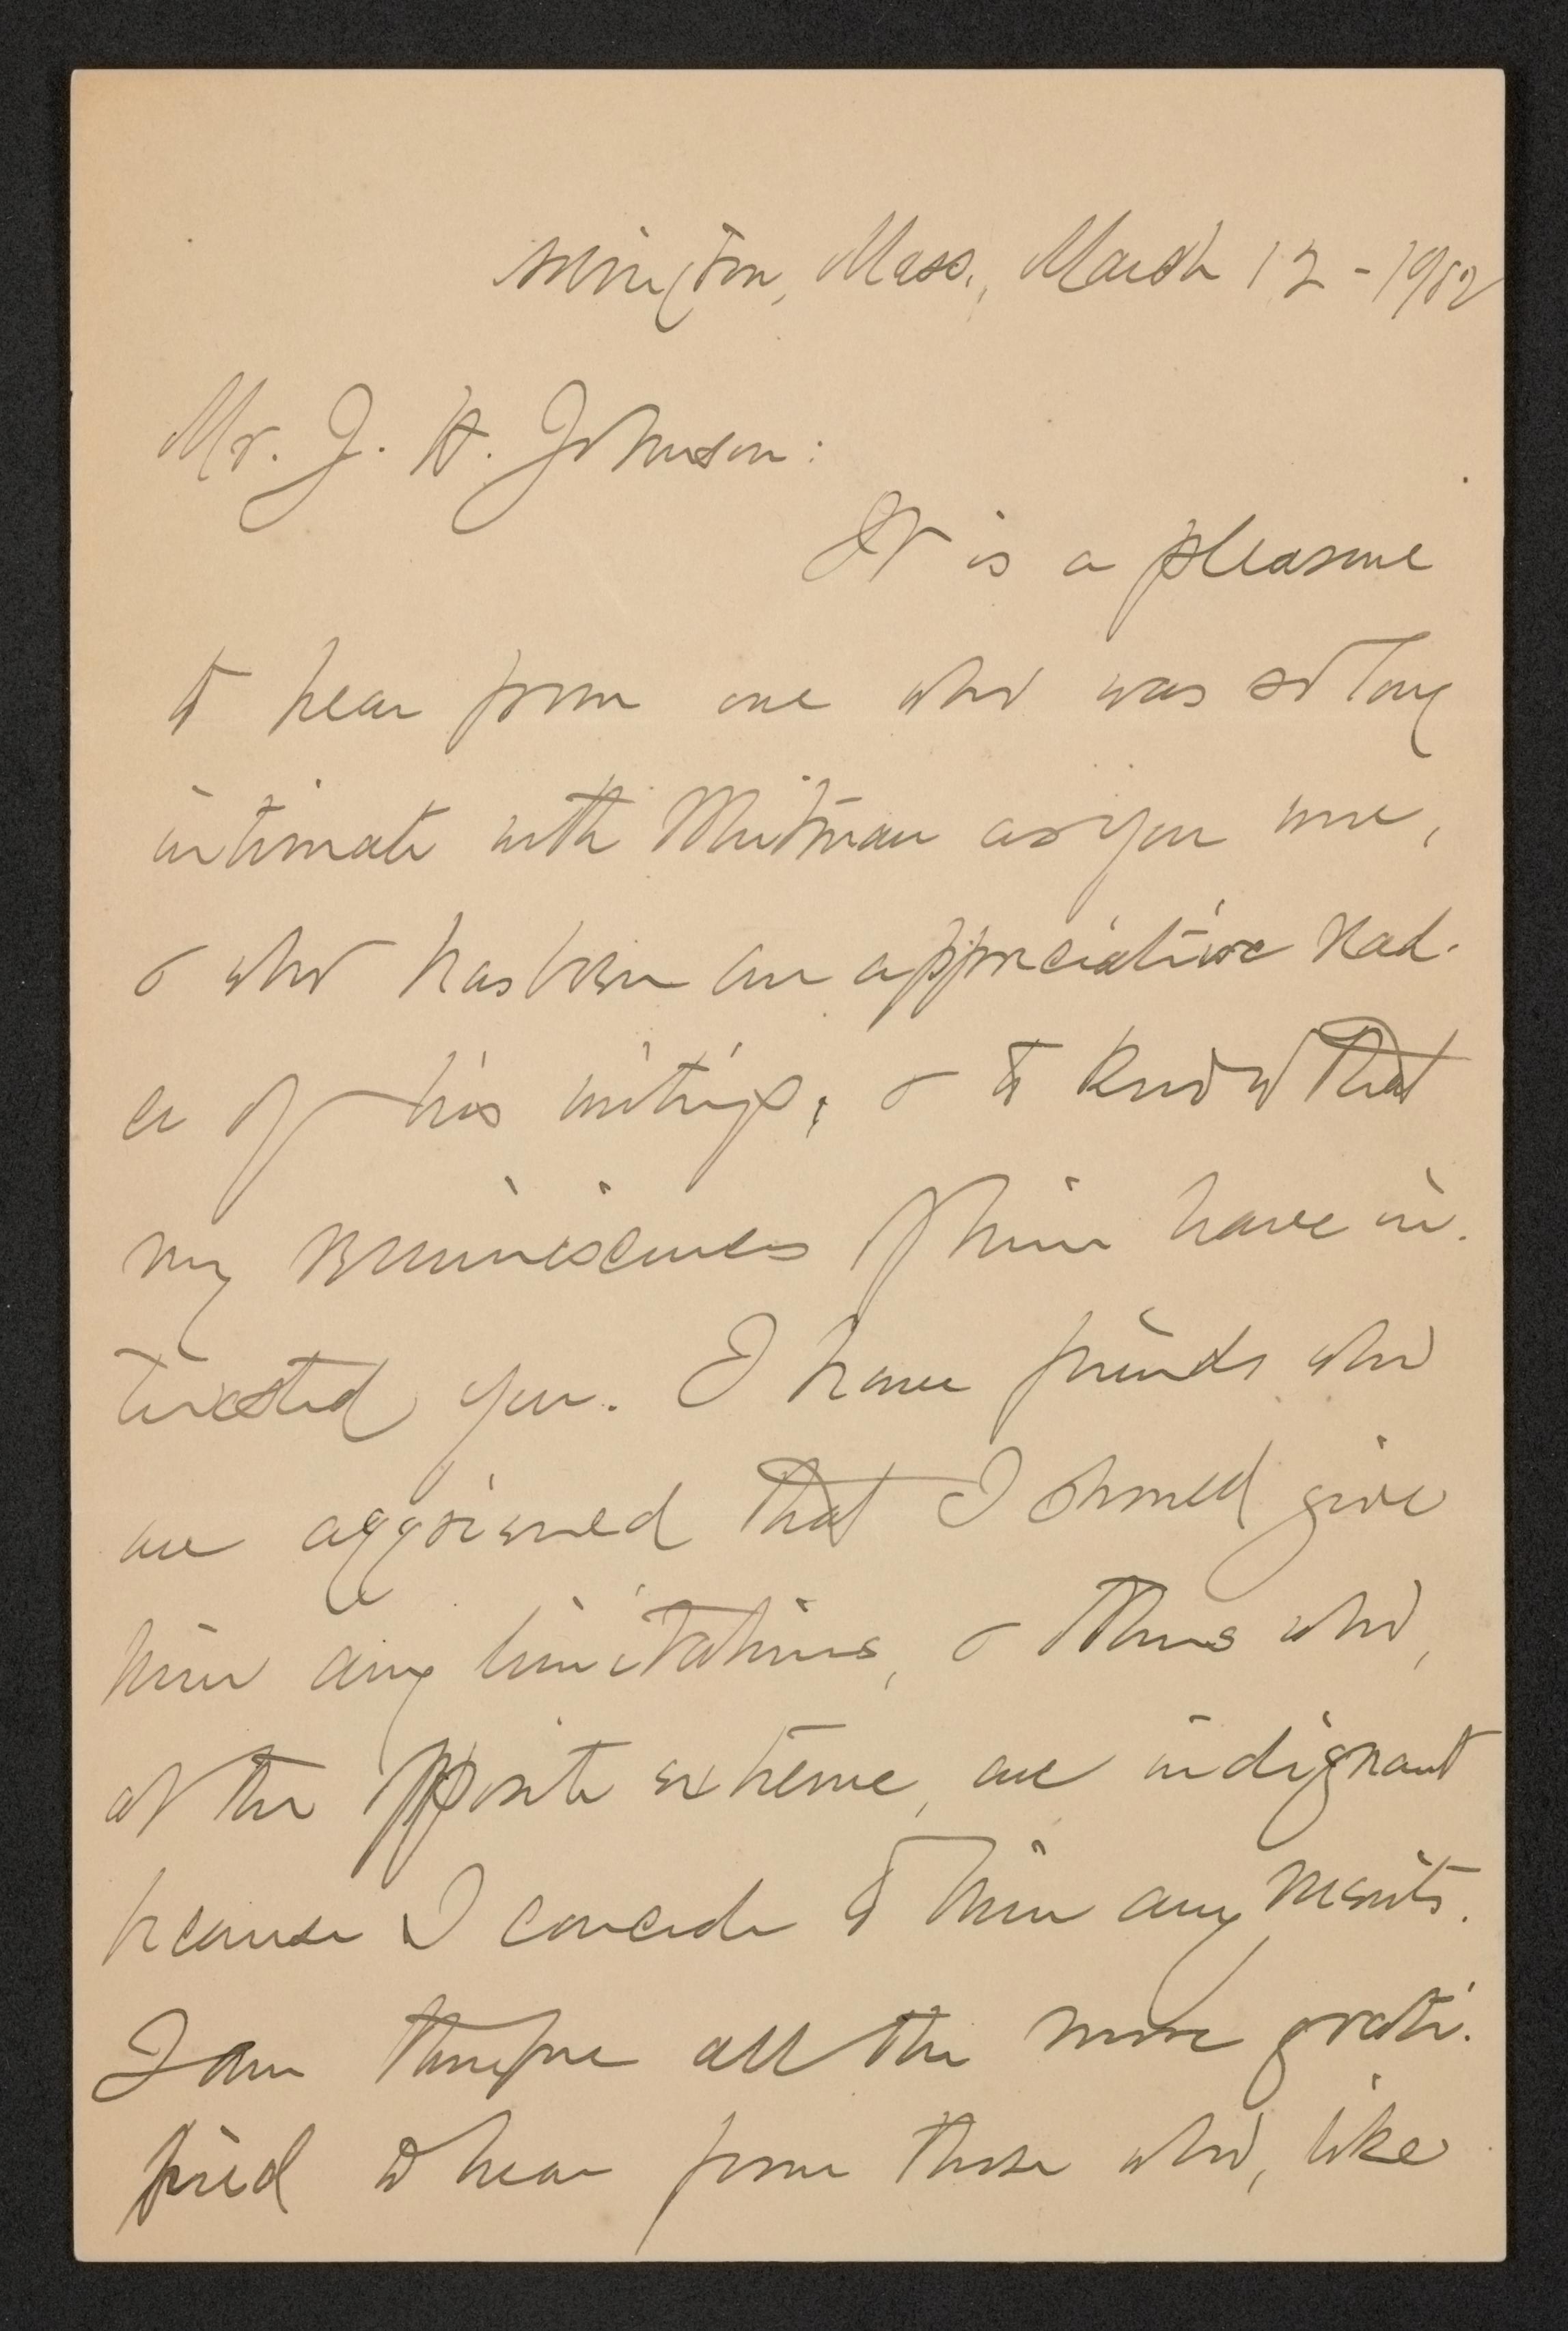 Arlington, Mass., March 12 - 1902
Mr. J. H. Johnson:
It is a pleasure
to hear from one who was so long
intimate with Whitman as you were,
& who has been an appreciative read-
er of his writings; & to know that
my reminiscences of him have in-
terested you. I have friends who
are aggrieved that I should give
him any limitations, & others who,
at the opposite extreme, are indignant
because I concede to him any merits.
I am therefore all the more grati-
fied to hear from those who, like